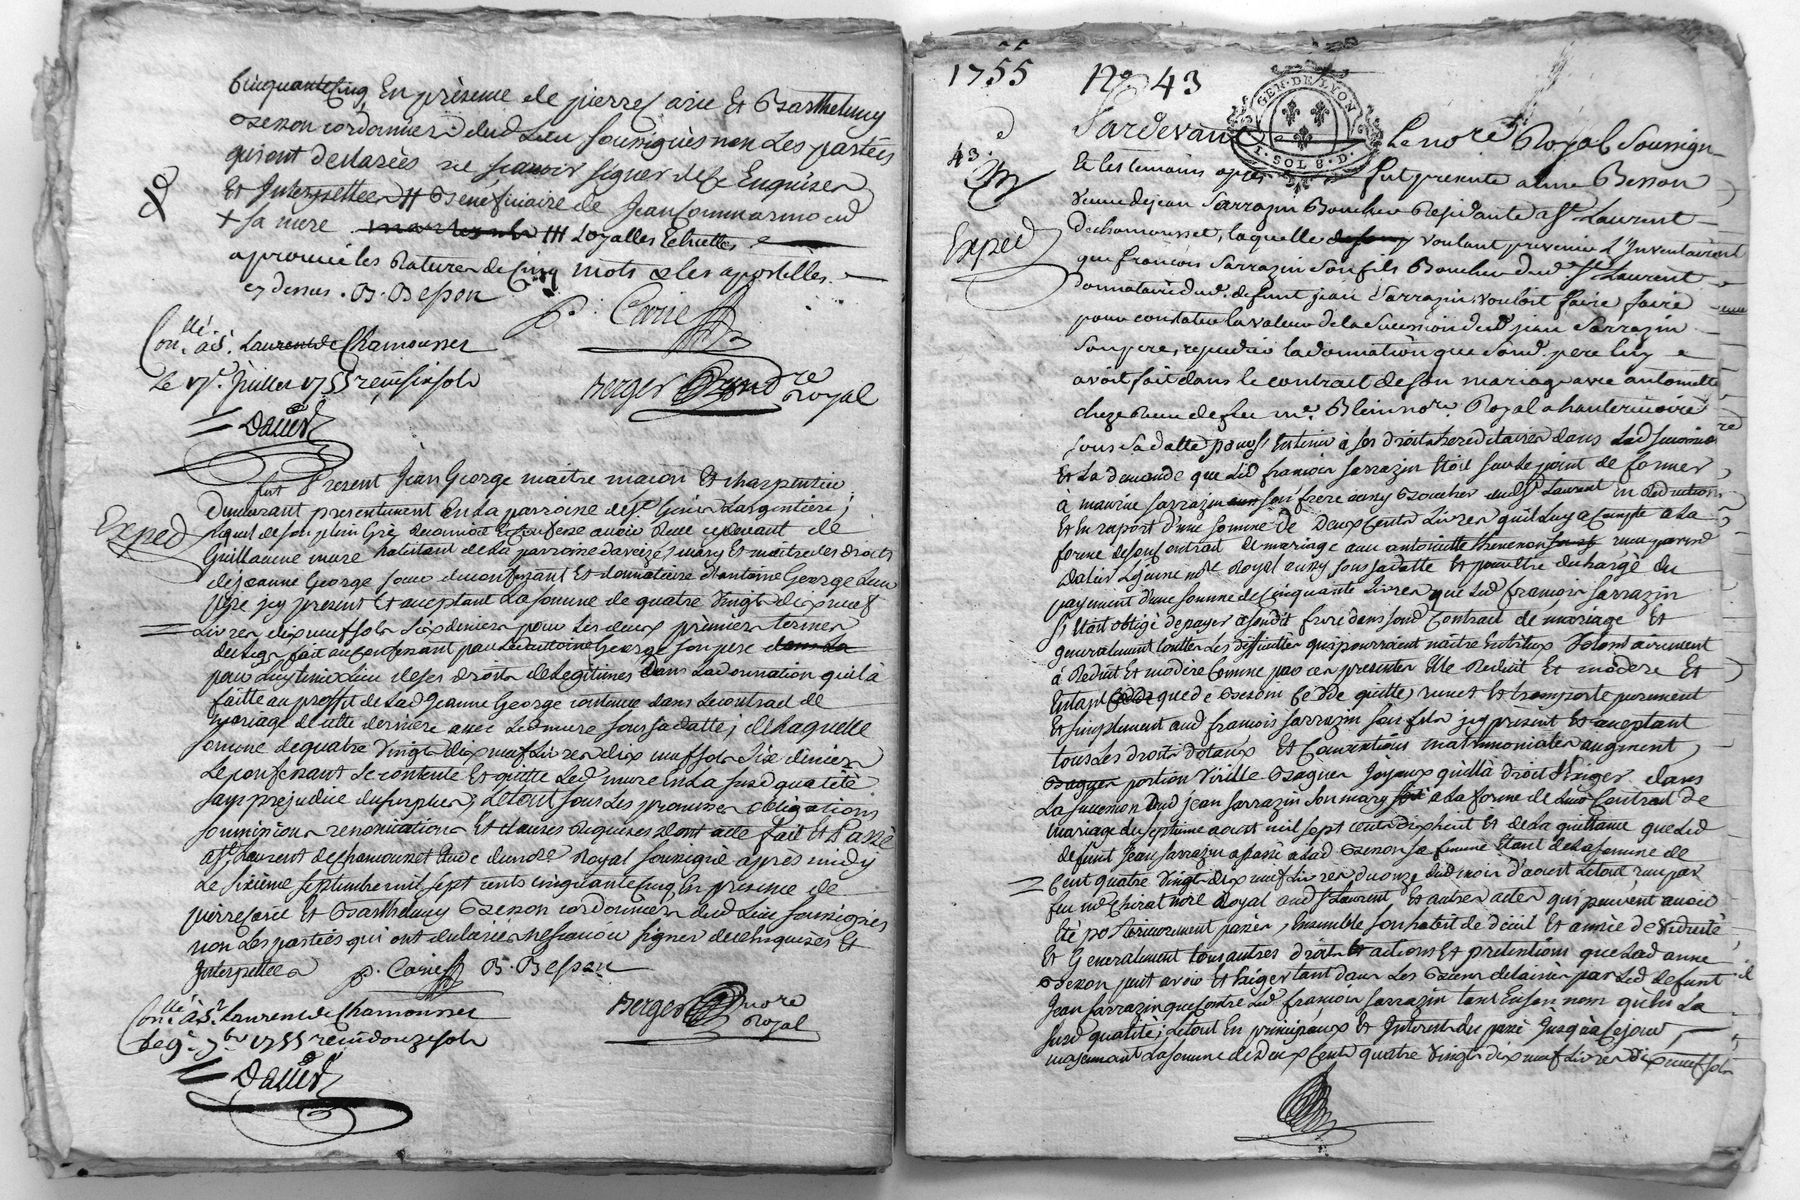 Cinquante Cinq En présence de pierre Carie Et Barthelmy
Besson cordonnier dud Lieu soussignés non Les parties
qui ont declarées ne scavoir signer de ce Enquises
Et Interpellées # Beneficiaire de Jean
+ sa mere ### Loyalles
aprouvé les Ratures de Cinq mots & les apostilles
cy dessus . B. Besson
P. Carie
Con.llé à S. Laurent de Chamousset
Le 17e Juillet 1755 reçu six sols
Berger nore Royal
David
Exped
fut Present Jean George maitre masson Et charpentier
Demeurant presentement En La parroisse de St Genis Largentiere;
Lequel de son plein Gré
Guillaume mure habitant de La parroisse daveize, mary Et maitre des droits
de Jeanne George soeur du confessant Et donnataire d'Antoine George Leur
pere icy present Et acceptant La somme de quatre Vingts dix neuf
Livres dix neuf sols six deniers pour Les deux premiers termes
du Legs fait au confessant par Led antoine George son pere dans La
pour Luy tenir Lieu de ses droits de Legitimes dans La donnation qu'il à
faitte au proffit de Lad Jeanne George contenue dans Le contrat de
mariage de cette derniere avec Led mure sous sa datte; de Laquelle
somme de quatre Vingts dix neuf Livres dix neuf sols six deniers
Le confessant se contente Et quitte Led mure En La susd qualité
sans prejudice du surplus; Le tout sous Les promesses obligations
soumissions renonciations Et clauses Requises dont acte fait Et Passé
a St Laurent de Chamousset Etude du nore Royal soussigné après midy
Le sixième septembre mil sept cents cinquante cinq En presence de
pierre Carie Et Barthelmy Besson cordonniers dud Lieu soussignés
non Les parties qui ont declarées ne scavoir signer de ce Enquises Et
Interpellées P. Carie B. Besson
Con.llé à St Laurent de Chamousset
Le 9e 7bre 1755 reçu douze sols
Berger nore Royal
David
1755 No 43
GEN. DE LYON
2. SOLS. D.
Pardevant Le nore Royal Soussigné
43
Et les temoins après fut presente anne Besson
Veuve de jean Sarrazin Boucher Residante a St Laurent
Exped
de chamousset, laquelle voulant prevenir L'Inventaire
que francois Sarrazin son fils Boucher dud St Laurent
Donnataire dud. defunt jean Sarrazin, vouloit faire faire
pour constater la valeur de la Succession dud jean Sarrazin
son pere, repudier la donnation que sond. pere luy
avoit fait dans le contrat de son mariage avec antoinette
receu de feu me. Blein nore Royal a hauterivoire
sous sa datte, pour s'en tenir à ses droits hereditaires dans Lad succession
Et La demande que Led francois Sarrazin Etoit sur le point de former
à maurice Sarrazin son frere aussy Boucher aud St Laurent en Reduction
Et En raport d'une somme de Deux Cents Livres quil Luy a Compté a La
forme de son Contrat de mariage avec antoinette Thevenon receu par
David Lejeune nore Royal aussy sous sa datte Et pour Etre dechargé du
payement d'une somme de Cinquante Livres que Led francois Sarrazin
s'Etoit obligé de payer a sondit frere dans sond Contrat de mariage Et
generalement touttes Les difficultés qui pourroient naitre Entr'eux Volontairement
à Reduit Et moderé Comme par ces presentes Elle Reduit Et modere Et
Entant que de Besoin Cede quitte, remet Et transporte purement
Et simplement aud francois Sarrazin son fils icy present Et acceptant
tous Les droits dotaux Et Conventions matrimoniales augment,
Bagues portion Virille Bagues Joyaux quil'à droit d'Exiger dans
La succession Dud jean Sarrazin son mary a La forme de Leur Contrat de
Mariage du septieme aoust mil sept cents dixhuit Et de La quittance que Led
defunt Jean Sarrazin a passé a Lad Besson sa femme Etant de La somme de
Cent quatre Vingts dix neuf Livres du onze dud mois d'aoust Le tout receu par
feu me Chirat nore Royal aud St Laurent, Et autres actes qui peuvent avoir
Eté posterieurement passés, Ensemble son habit de deüil Et année de Viduité
Et Generalement tous autres droits Et actions Et pretentions que Lad anne
Besson peut avoir Et Exiger tant dans Les Biens delaissés par Led defunt
Jean Sarrazin que Contre Led francois Sarrazin tant En son nom qu'En La
susd qualité; Le tout En principaux Et Interest du passé Jusqu'à Ce jour,
moyennant La somme de Deux Cents quatre Vingts dix neuf Livres dix neuf sols